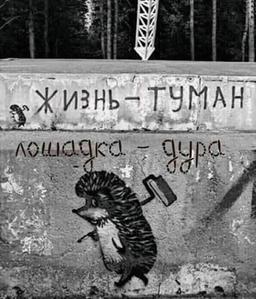 ЖИЗНЬ - ТУМАН
лошадка - дура